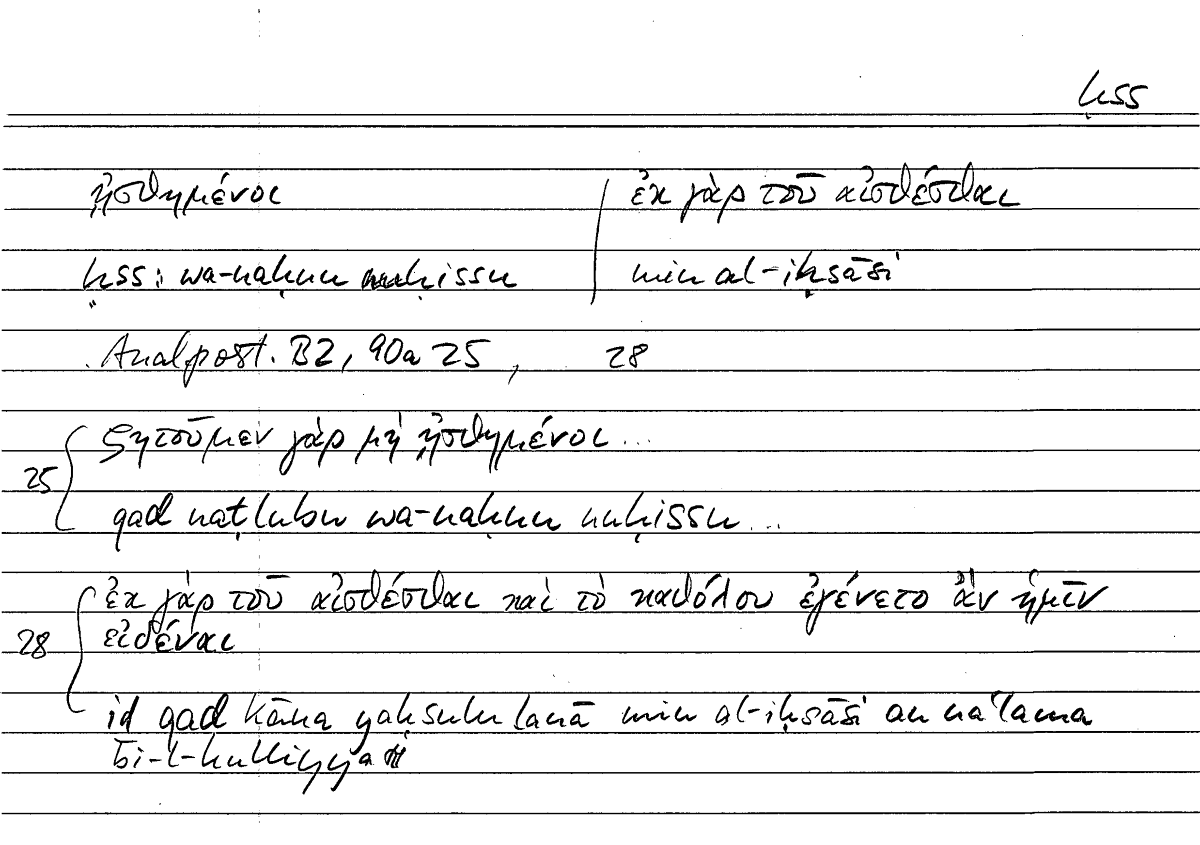 ḥss
ᾐσθημένοι | ἐκ γὰρ τοῦ αἰσθέσθαι
ḥss: wa-naḥnu nuḥissu | min al-iḥsāsi
Anal.post. B2, 90a 25, 28
ζητοῦμεν γὰρ μὴ ᾐσθημένοι...
25
qad naṭlubu wa-naḥnu nuḥissu...
ἐκ γὰρ τοῦ αἰσθέσθαι καὶ τὸ καθόλου ἐγένετο ἂν ἡμῖν
28 εἰδέναι
id qad kāna yaḥsulu lanā min al-iḥsāsi an naʿlama
bi-l-kulliyyati